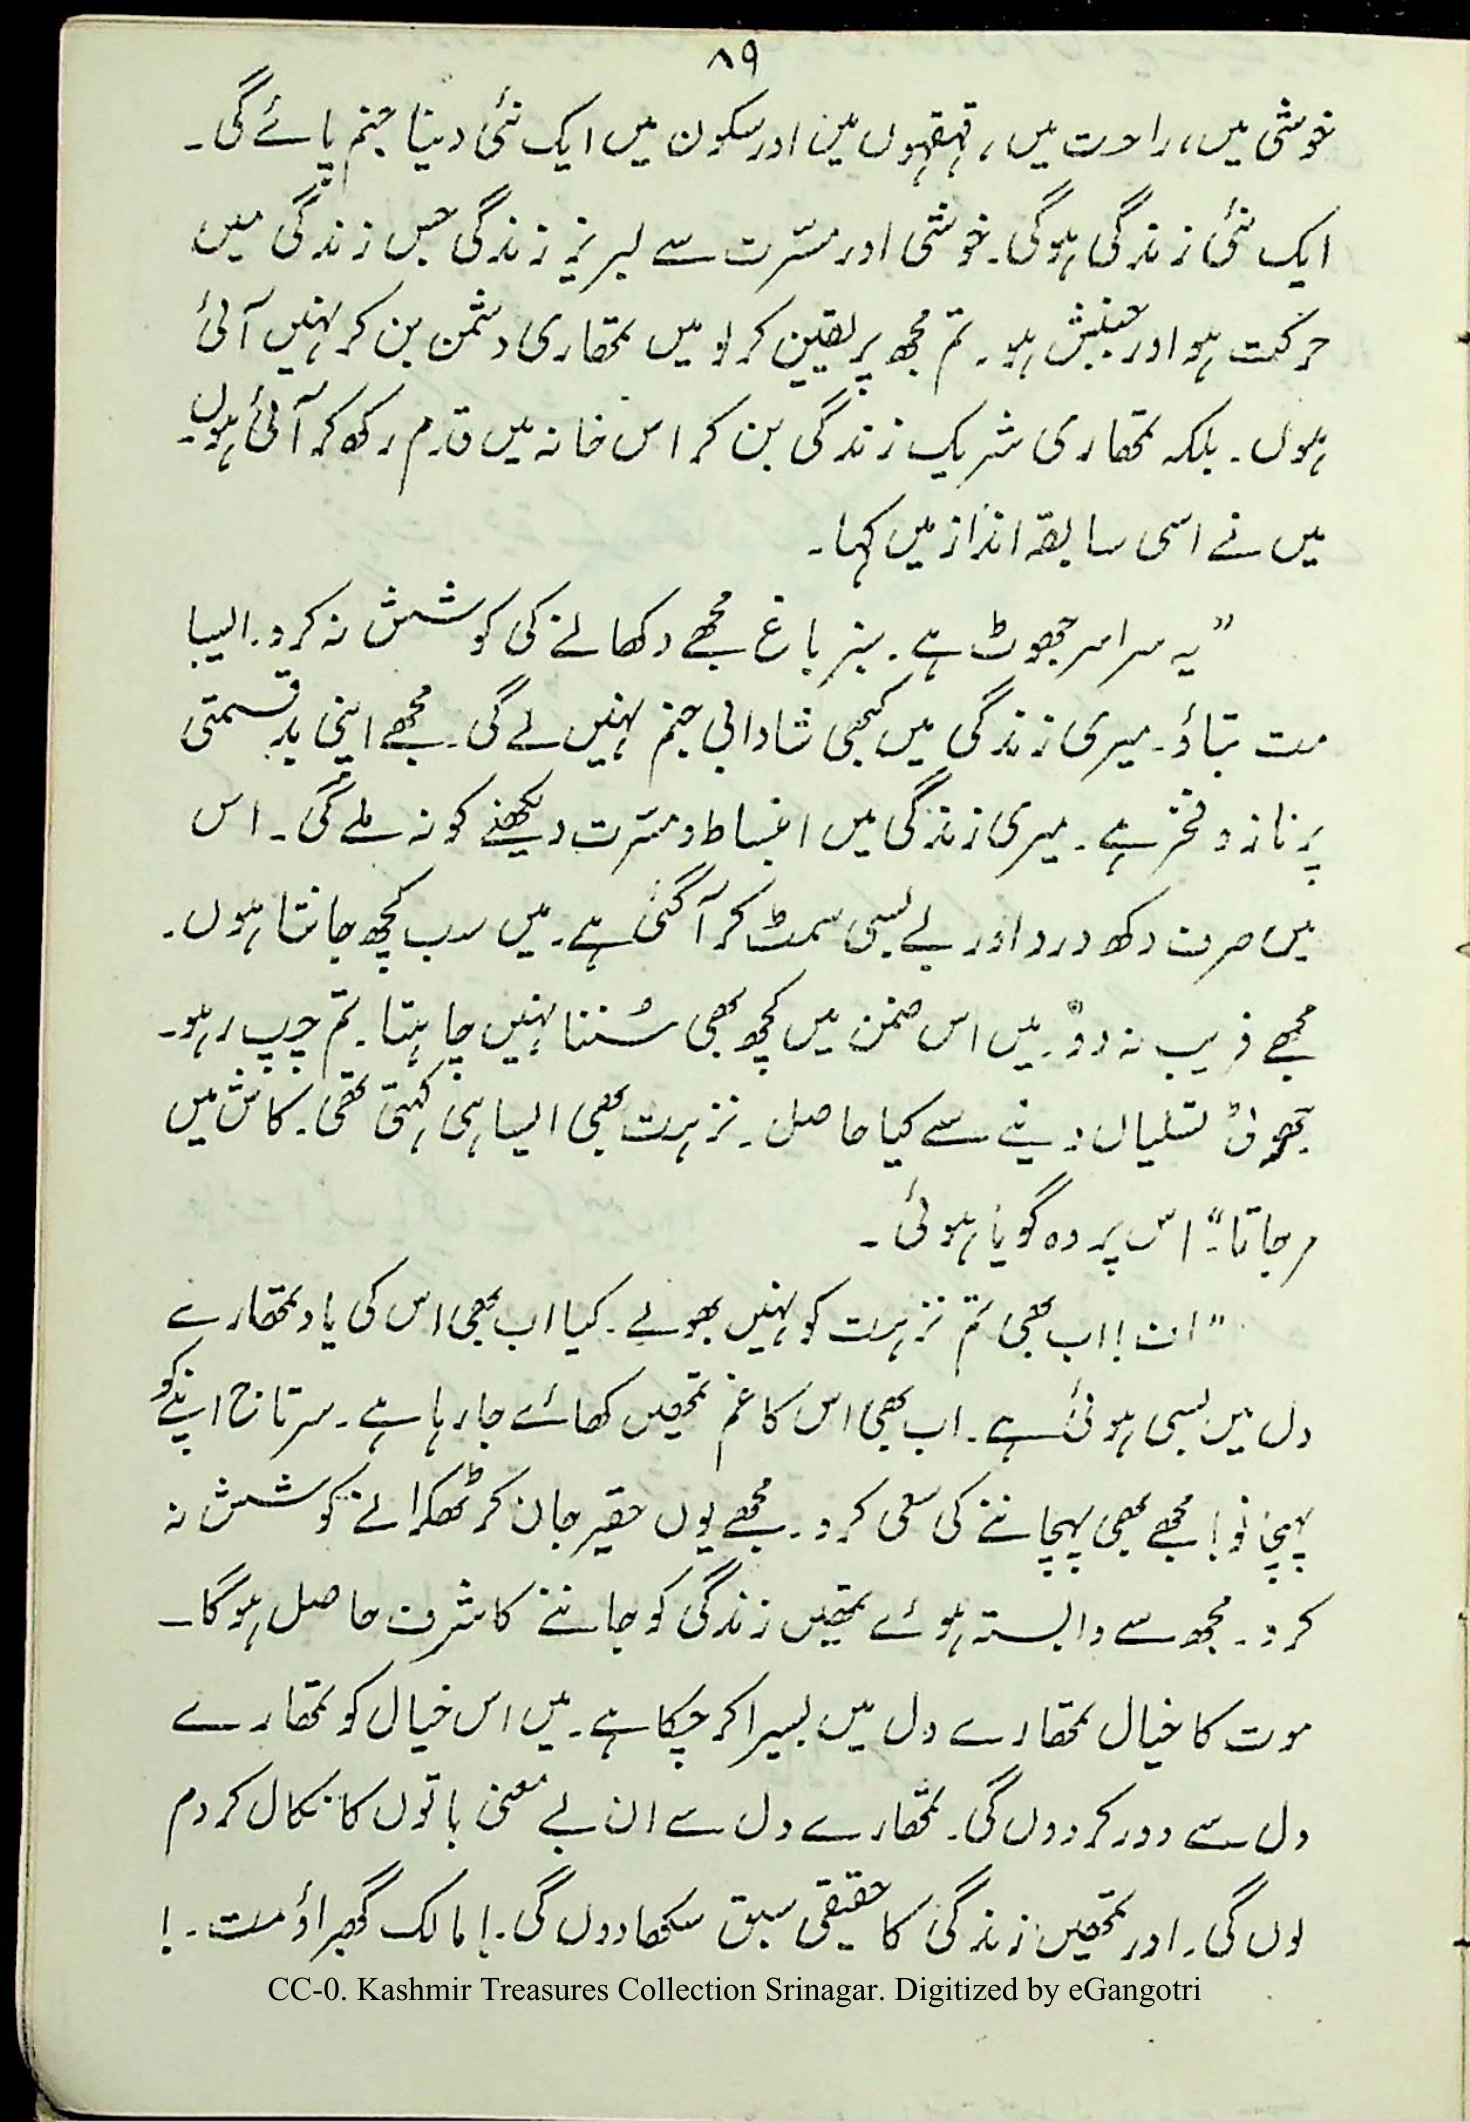 ۸۹
خوشی میں، راحت میں، قہقہوں میں اور سکون میں ایک نئی دنیا جنم پائے گی۔
ایک نئی زندگی ہوگی۔ خوشی اور مسرّت سے لبریز زندگی جس زندگی میں
حرکت ہو اور جنبش ہو۔ تم مجھ پر یقین کر لو میں تمھاری دشمن بن کر نہیں آئی
ہوں۔ بلکہ تمھاری شریک زندگی بن کر اس خانہ میں قدم رکھ کر آئی ہوں۔
میں نے اسی سابقہ انداز میں کہا۔
"یہ سراسر جھوٹ ہے۔ سبز باغ مجھے دکھانے کی کوشش نہ کرو۔ ایسا
مت بتاؤ۔ میری زندگی میں کبھی شادابی جنم نہیں لے گی۔ مجھے اپنی بدقسمتی
پر ناز و فخر ہے۔ میری زندگی میں انبساط و مسرّت دیکھنے کو نہ ملے گی۔ اس
میں صرف دکھ درد اور بے بسی سمٹ کر آ گئی ہے۔ میں سب کچھ جانتا ہوں۔
مجھے فریب نہ دو۔ میں اس ضمن میں کچھ بھی سُننا نہیں چاہتا۔ تم چپ رہو۔
جھوٹی تسلیاں دینے سے کیا حاصل۔ نزہت بھی ایسا ہی کہتی تھی۔ کاش میں
مر جاتا۔" اس پر وہ گویا ہوئی۔
"اف! اب بھی تم نزہت کو نہیں بھولے۔ کیا اب بھی اس کی یاد تمھارے
دل میں بسی ہوئی ہے۔ اب بھی اس کا غم تمھیں کھائے جا رہا ہے۔ سرتاج اپنے کو
پہچانو! مجھے بھی پہچاننے کی سعی کرو۔ مجھے یوں حقیر جان کر ٹھکرانے کوشش نہ
کرو۔ مجھ سے وابستہ ہوئے تمھیں زندگی کو جاننے کا شرف حاصل ہوگا۔
موت کا خیال تمھارے دل میں بسیرا کر چکا ہے۔ میں اس خیال کو تمھارے
دل سے دور کر دوں گی۔ تمھارے دل سے ان بے معنی باتوں کا نکال کر دم
لوں گی۔ اور تمھیں زندگی کا حقیقی سبق سکھا دوں گی۔! مالک گھبراؤ مت۔!
CC-0. Kashmir Treasures Collection Srinagar. Digitized by eGangotri